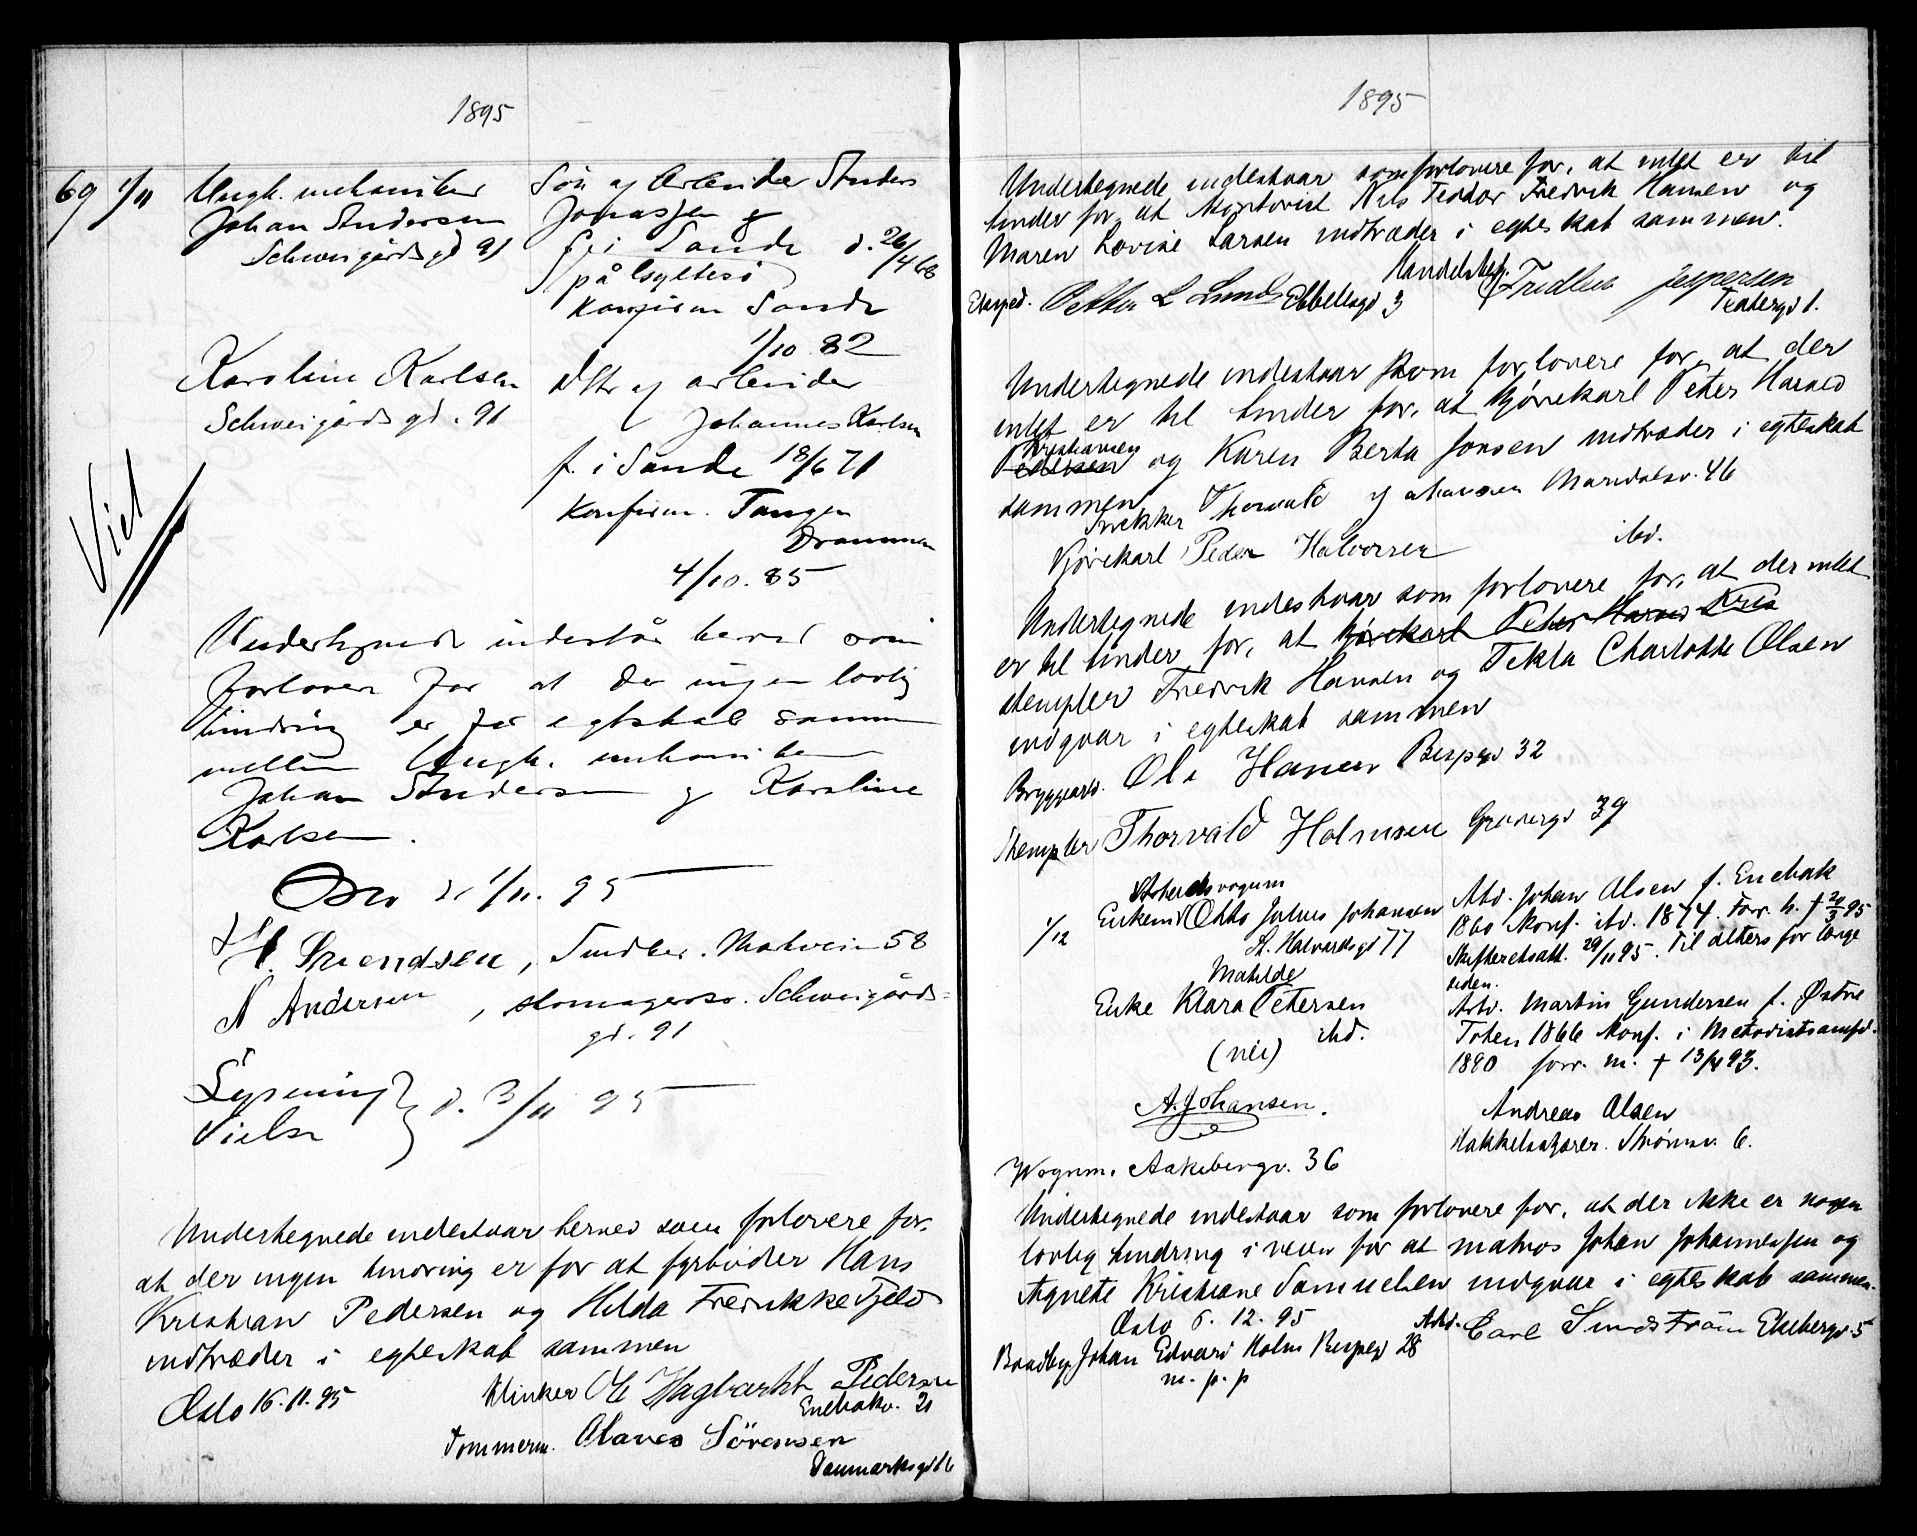 1895
69 1/11 Ungk. mekaniker Søn af Arbeider Anders
Johan Andersen Jonassen &
Schweigårds gd 91 f. i Sande d. 26/4 68
på
Konfirm Sande
1/10 82
Karoline Karlsen Dtr af arbeider
Schweigårds gd. 91 Johannes Karlsen
f. i Sande 18/6 71
Viet
Konfirm. Tangen
Drammen
4/10. 85
Undertegnede indestår herved som
forlovere for at der ingen lovlig
hindring er for egteskab sammen
mellem Ungk. mekaniker
Johan Andersen & Karoline
Karlsen.
Oslo d. 1/11. 95
H. Svendsen, Snedker. 58
N Andersen, skomagersv. Schweigårds=
gd. 91
Lysning
Vielse } d. 3/11 95
Undertegnede indestaar herved som forlovere for,
at der ingen hindring er for at fyrbøder Hans
Kristian Pedersen og Hilda Fredrikke Fjeld
indtræder i egteskab sammen
Oslo 16.11.95 Klinker Ole Hagbarth Pedersen
Enebakv. 21
Tømmerm. Olaves Sörensen
Danmarksgd 16
1895
Undertegnede indestaar som forlovere for, at intet er til
hinder for, at Kontorist Nils Teodor Fredrik Hansen og
Maren Lovise Larsen indtræder i egteskab sammen.
Exsped. Petter L Lund Ebbellsgd 3 Handelsbetj. Fredlieb Jespersen
Teatergd 1.
Undertegnede indestaar som forlovere for, at der
intet er til hinder for, at Kjørekarl Peter Harald
Kristiansen
Pedersen og Karen Berta Jonsen indtræder i egteskab
sammen
Snekker Thorvald Johansen Maridalsv. 46
Kjørekarl Peder Halvorsen ibd.
Undertegnede indestaar som forlovere for, at der intet
er til hinder for, at Kjørekarl Peter Harald Kris
stempler Fredrik Hansen og Tekla Charlotte Olsen
indgaar i egteskab sammen
Bryggearb. Ole Hansen Bispegd 32
Stempler Thorvald Holmsen Grønergd 39
Arbeidsvognm
1/12 Enkem. Otto Julius Johansen Arb. Johan Olsen f. Enebak
St. Halvardsgd 77 1860 Konf. ibd. 1874. Forr. h. † 24/3 95
Skifteretsatt. 29/11 95. Til alters for længe
siden.
Matilde
Enke Klara Petersen Arb. Martin Gundersen f. Østre
ibd. Toten 1866 Konf. i Metodistsamfd.
(nei) 1890 forr. m. † 13/4 93.
A. Johansen. Andreas Olsen
Hakkelsskjærer. Strømsv. 6.
Vognm. Aakebergv. 36
Undertegnede indestaar som forlovere for, at der ikke er nogen
lovlig hindring i veien for at matros Johan Johannessen og
Agnete Kristiane Samuelsen indgaar i egteskab sammen.
Oslo 6. 12. 95 Arb. Carl Sundström Ekebergv. 5
Baadbyg. Johan Edvard Holm Bispegd 28
m. p. p